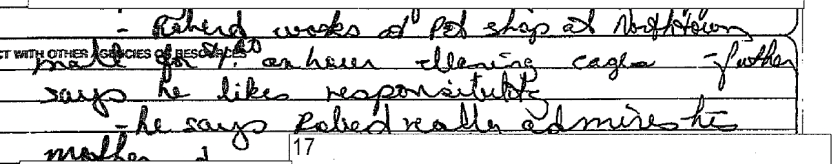 - Roberd works at Pet shop at Northtown
CT WITH OTHER AGENCIES OR RESOURCES
mall for an hour cleaning cages - father
says he likes responsibility
- he says Roberd really admires his
mother
17